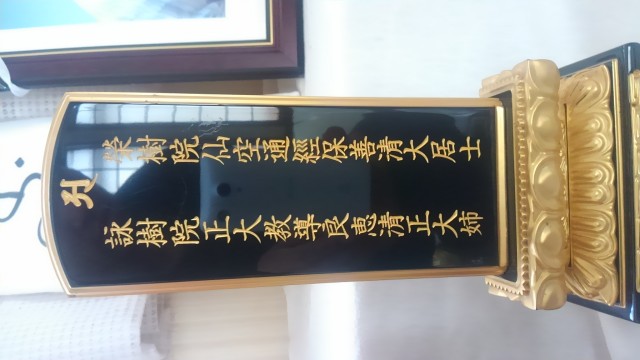 榮樹院仙空通經保善清大居士
詠樹院正大教導良恵清正大姉